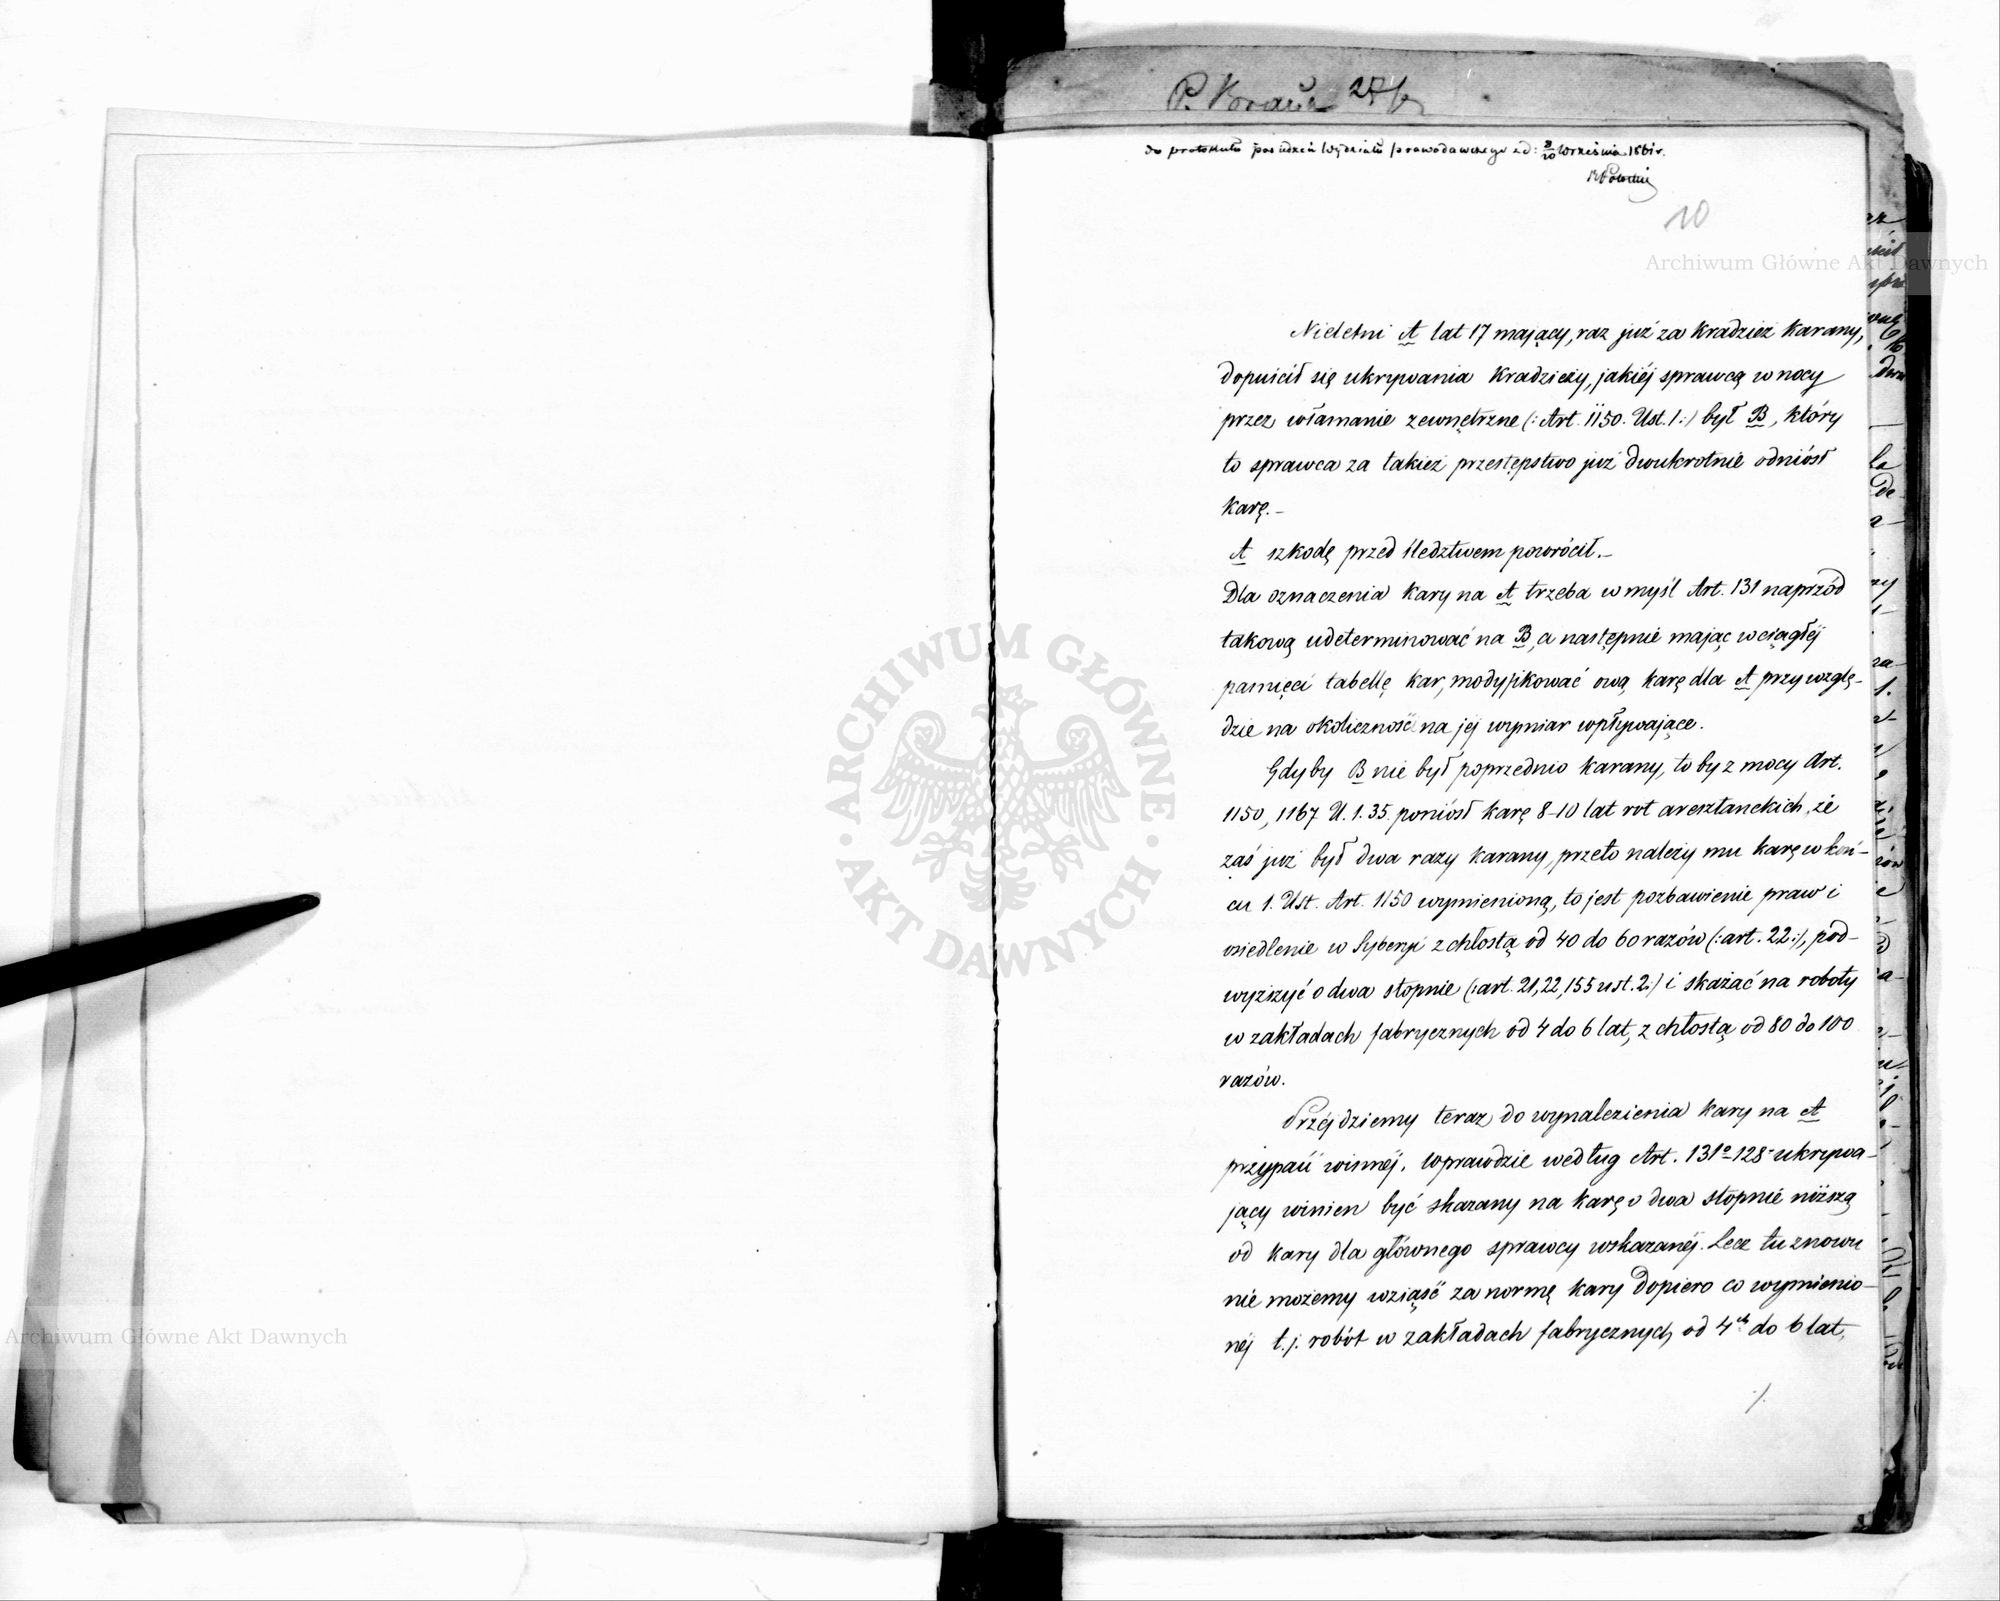 P. Kraus
do protokułu posiedzeń Wydziału prawodawczego z d: 8/20 Września 1861 r.
10
Archiwum Główne Akt Dawnych
Nieletni A lat 17 mający, raz już za kradzież karany,
dopuścił się ukrywania kradzieży, jakiéj sprawcą w nocy
przez włamanie zewnętrzne (: Art. 1150. Ust. 1:) był B, który
to sprawca za takież przestępstwo już dwukrotnie odniósł
karę.–
A szkodę przed śledztwem powrócił.–
Dla oznaczenia kary na A trzeba w myśl Art. 131 naprzód
takową udeterminować na B, a następnie mając w ciągłéj
pamięci tabellę kar, modyfikować ową karę dla A przy wzglę-
dzie na okoliczność na jej wymiar wpływające.
Gdyby B nie był poprzednio karany, to by z mocy Art.
1150, 1167 U. 1. 35. poniósł karę 8–10 lat rot aresztanckich, że
zaś już był dwa razy karany, przeto należy mu karę w koń-
cu 1. Ust. Art. 1150 wymienioną, to jest pozbawienie praw i
osiedlenie w Syberyi z chłostą od 40 do 60 razów (: art. 22:), pod-
wyższyć o dwa stopnie (: art. 21, 22, 155 ust. 2:) i skazać na roboty
w zakładach fabrycznych od 4 do 6 lat, z chłostą od 80 do 100
razów.
Przéjdziemy teraz do wynalezienia kary na A
przypaść winnéj. Wprawdzie według Art. 131º–128 ukrywa-
jący winien być skazany na karę o dwa stopnie niższą
od kary dla głównego sprawcy wskazanéj. Lecz tu znowu
nie możemy wziąść za normę kary dopiero co wymienio-
néj t. j. robót w zakładach fabrycznych od 4ch do 6 lat,
./.
ARCHIWUM GŁÓWNE · AKT DAWNYCH ·
Archiwum Główne Akt Dawnych